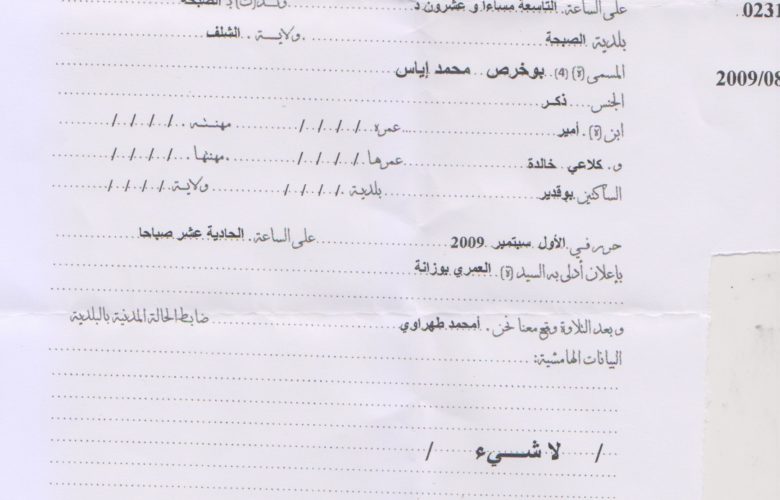 على الساعة. التاسعة مساءا و عشرون د
0231
بلدية الصبحة ولاية الشلف
المسمى (ة) (4) بوخرص محمد إياس
2009/08
الجنس ذكر
ابن (ة). أمير عمره / / / / / مهنته / / / / /
و. كلاعي خالدة عمرها / / / / / مهنتها / / / / /
الساكنين بوقدير بلدية / / / / / ولاية / / / / /
حرر في. الأول سبتمبر 2009 على الساعة. الحادية عشر صباحا
بإعلان أدلى به السيد (ة). العمري بوزانة
و بعد التلاوة وقع معنا نحن. أمحمد طهراوي ضابط الحالة المدنية بالبلدية
البيانات الهامشية:
/ لا شيء /